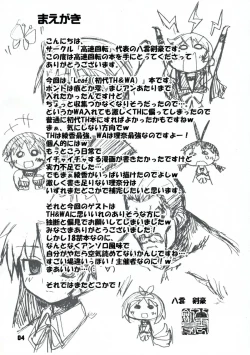 まえがき
こんにちは、
サークル「高速回転」代表の八雲剣豪です。
この度は高速回転の本を手にとってくださって
ありがとうございます。
今回は「Leaf」(初代TH&WA)」本です。
ホントは痕とか零、ましアンあたりまで
入れたかったんですけど
ちょっと収集つかなくなりそうだったので…
というかWA入れても激しくTHに偏ってしまったので
普通に初代TH本にすればよかったかもですねw
まぁ、気にしない方向でw
THは綾香最強、WAは理奈最強なのですよー！
個人的にはw
もっとこう日常で
イチャイチャする漫画が書きたかったですけど
実力不足でした…
でもまぁ綾香がいっぱい描けたのでよしw
激しく書き足りない理奈分は
いずれまたどこかで補充したいと思います。
それと今回のゲストは
TH&WAに思い入れのありそうな方に
独断と偏見でお願いしてしまいましたw
みなさまありがとうございます！
しかし18禁本なのに、
なんとなくアンソロ風味で
自分がやたら空気読めてないかんじですね
すごい場違いっぽい！主催者なのに！w
まあいいか…(ﾟ∀ﾟ)
それではまたどこかで！
八雲 剣豪
04